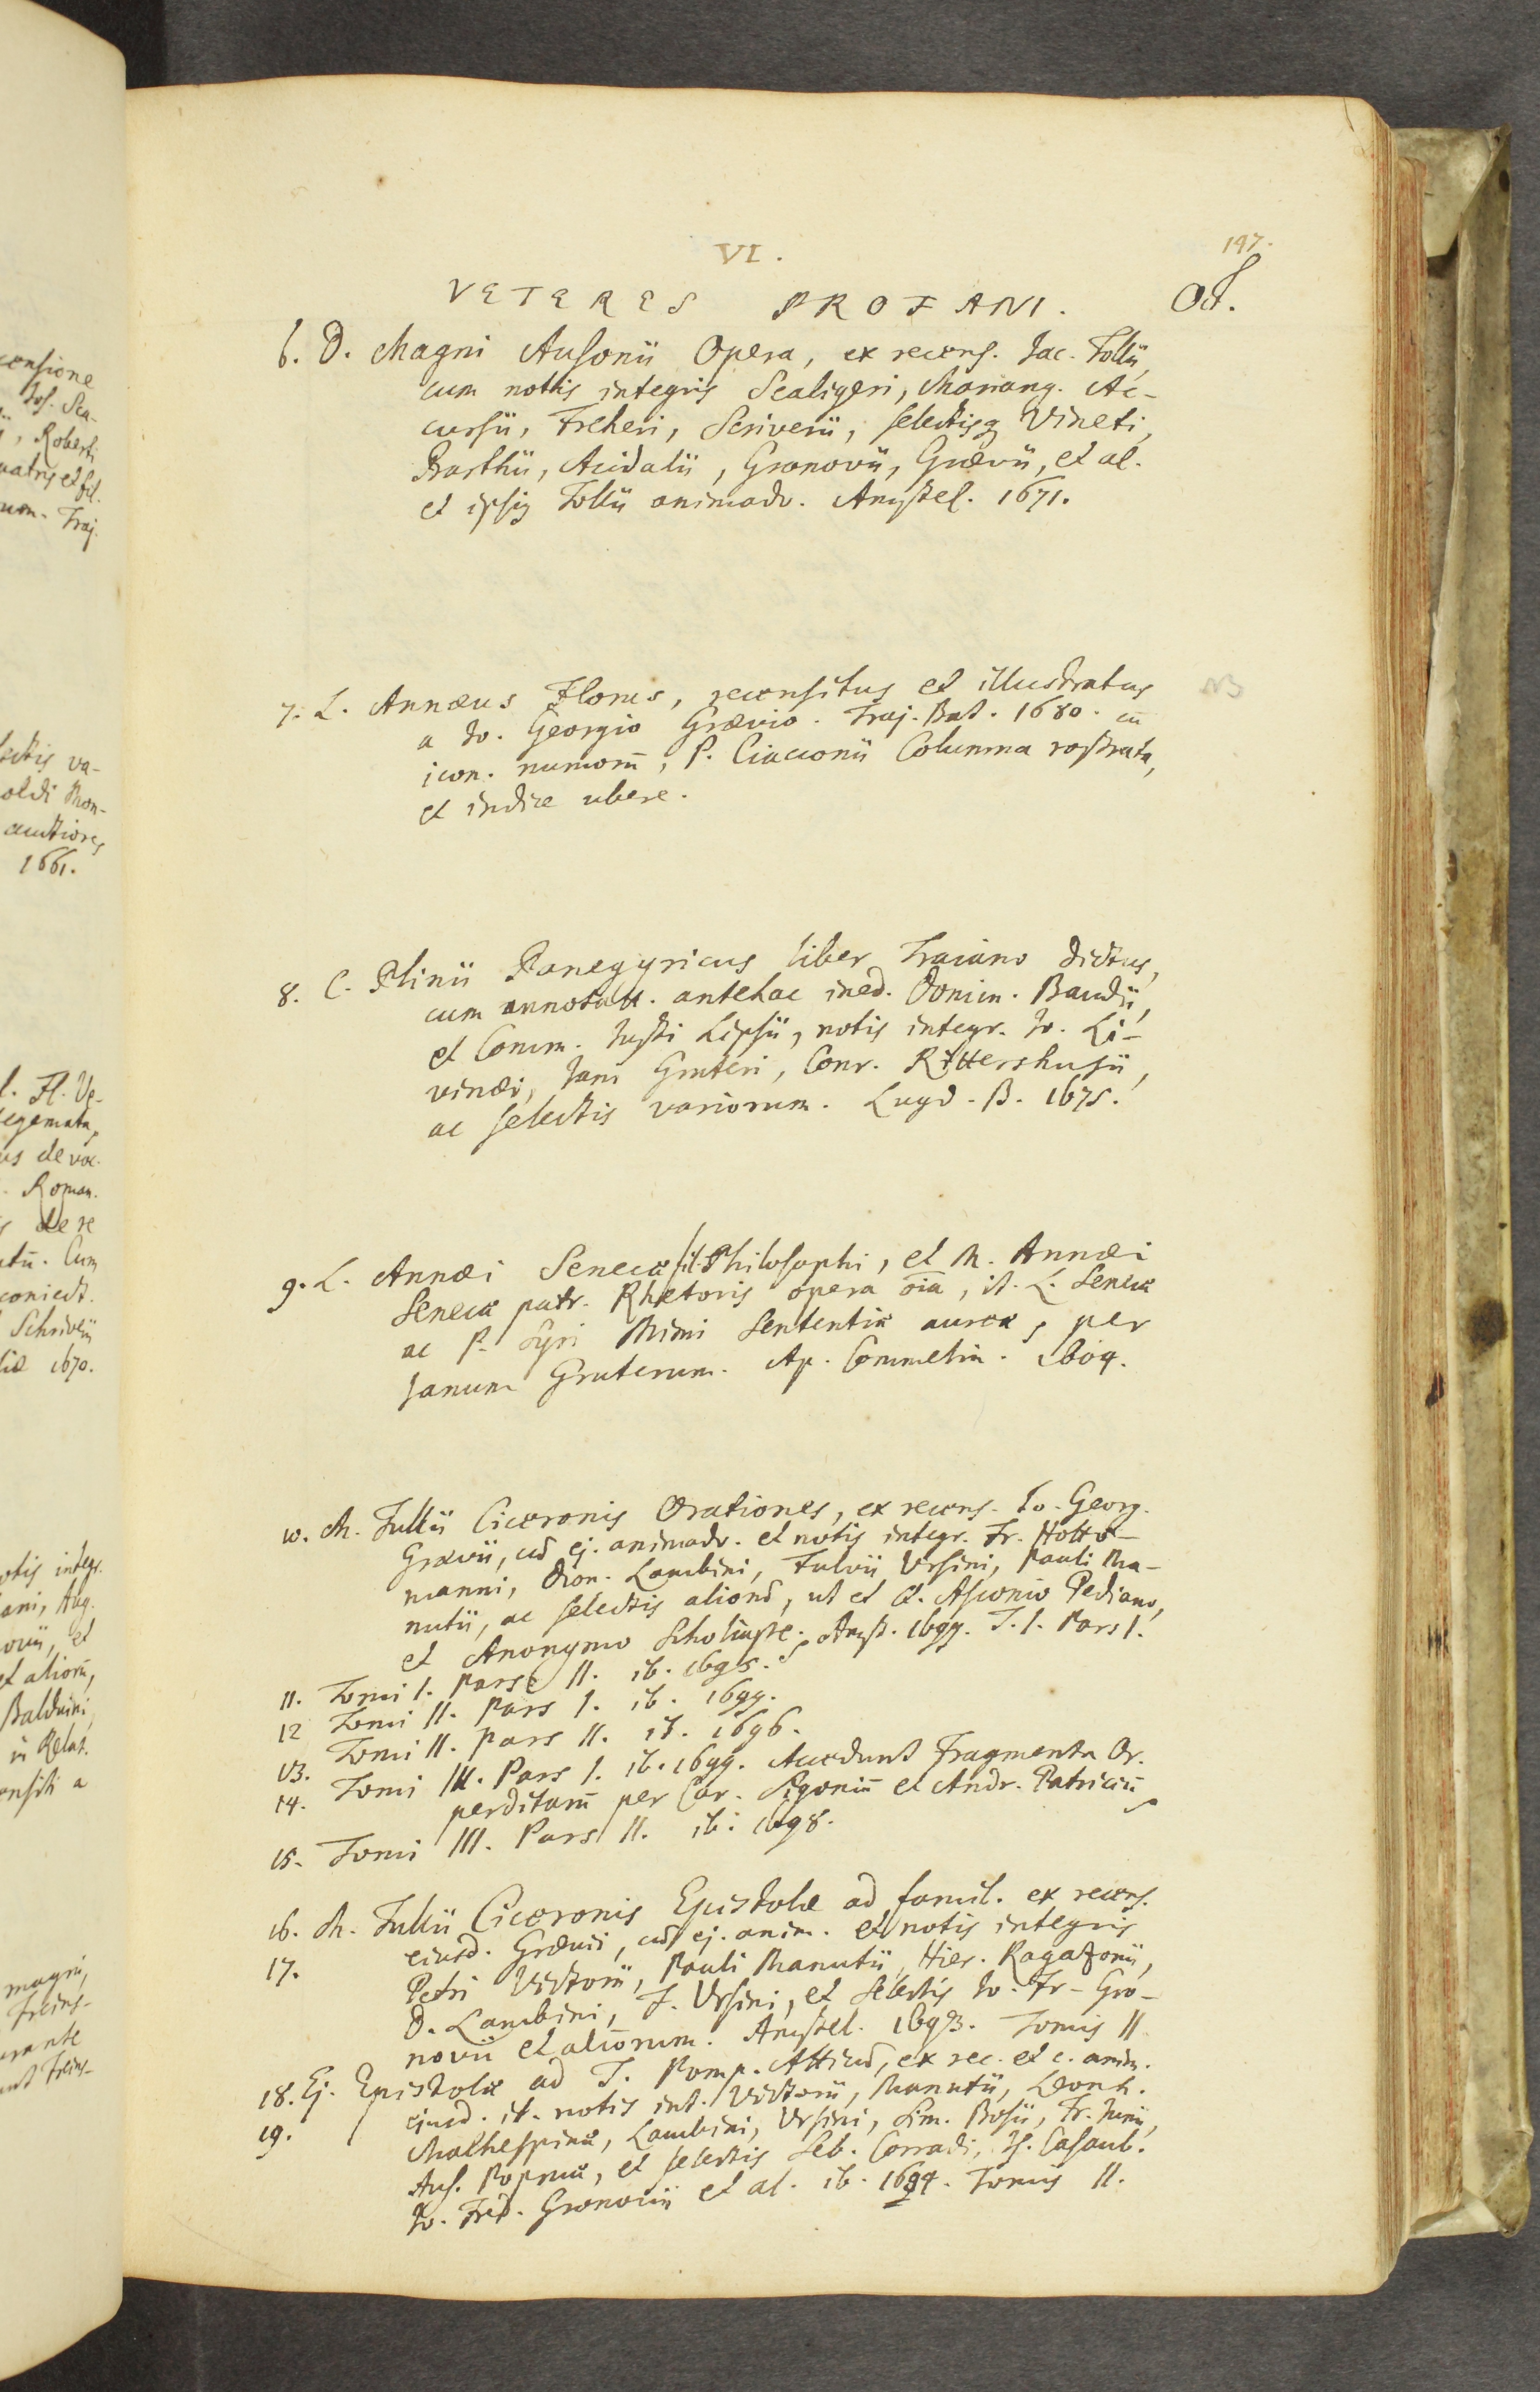 197.
VI.
VETERES PROFANI. Oct.
6. D. Magni Ausonii Opera, ex recens. Jac. Tollii,
cum nottis integris Scaligeri, Mariang. Ac-
cursii, Freheri, Scriverii, selectisq Vineti,
Barthii, Acidalii, Gronovii, Grævii, et al.
et ipsiq Tollii animadv. Amstel. 1671.
7. L. Annæus Florus, recensitus et illustratus
a Jo. Georgio Grævio. Traj. Bat. 1680. cū
icon. numorū, P. Ciacconii Columna rostrata,
et indice ubere.
NB
8. C. Plinii Panegyricus liber Traiano dictus,
cum annotatt. antehac ined. Domin. Baudii,
et Comm. Justi Lipsii, notis integr. Jo. Li-
vinæi, Jani Gruteri, Conr. Rittershusii,
ac selectis variorum. Lugd. B. 1675.
9. L. Annæi Senecæ fil. Philosophi, et M. Annæi
Senecæ patr. Rhetoris opera oīa, it. L. Senecæ
ac P. Syri Mimi Sententiæ aureæ, per
Janum Gruterum. Ap. Commelin. 1604.
10. M. Tullii Ciceronis Orationes, ex recens. Jo. Georg.
Grævii, cū ej. animadv. et notis integr. Fr. Hotto-
manni, Dion. Lambini, Fulvii Ursini, Pauli Ma-
nutii, ac selectis aliorū, ut et Q. Asconio Pediano,
et Anonymo Scholiaste. Amst. 1699. T. I. Pars I.
11. Tomi I. Pars II. ib. 1695.
12 Tomi II. Pars I. ib. 1699.
13. Tomi II. pars II. ib. 1696.
14. Tomi III. Pars I. ib. 1699. Accedunt Fragmenta Or.
perditarū per Car. Sigoniū et Andr. Patriciū
15. Tomi III. Pars II. ib. 1698.
16. M. Tullii Ciceronis Epistolæ ad famil. ex recens.
17. eiusd. Grævii, cū ej. anim. et notis integris
Petri Victorii, Pauli Manutii, Hier. Ragazonii,
D. Lambini, F. Ursini, et selectis Jo. Fr. Gro-
novii et aliorum. Amstel. 1693. Tomis II
18. Ej. Epistolæ ad T. Pomp. Atticū, ex rec. et c. anim.
19. ejusd. it. notis int. Victorii, Manutii, Leonh.
Malhespinæ, Lambini, Ursini, Sim. Bosii, Fr. Junii,
Aus. Popmæ, et selectis Seb. Corradi, Is. Casaub.
Jo. Fred. Gronovii et al. ib. 1684. Tomis II.